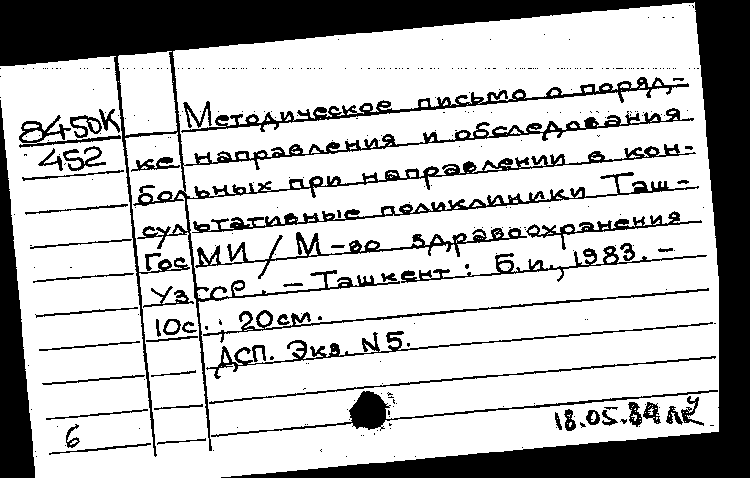 8450К
452
Методическое письмо о поряд-
ке направления и обследования
больных при направлении в кон-
сультативные поликлиники Таш-
ГосМИ / М-во здравоохранения
УзССР. – Ташкент: Б.и., 1983. –
10с.; 20см.
ДСП. Экз. N5.
6
18.05.84